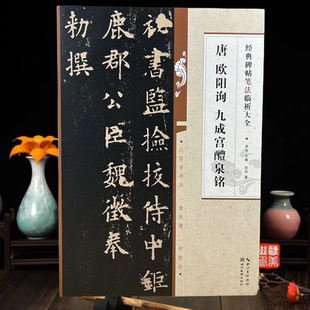 经典碑帖笔法临析大全
唐 欧阳询 九成宫醴泉铭
秘書監撿挍侍中鉅
鹿郡公臣魏徵奉
勑撰